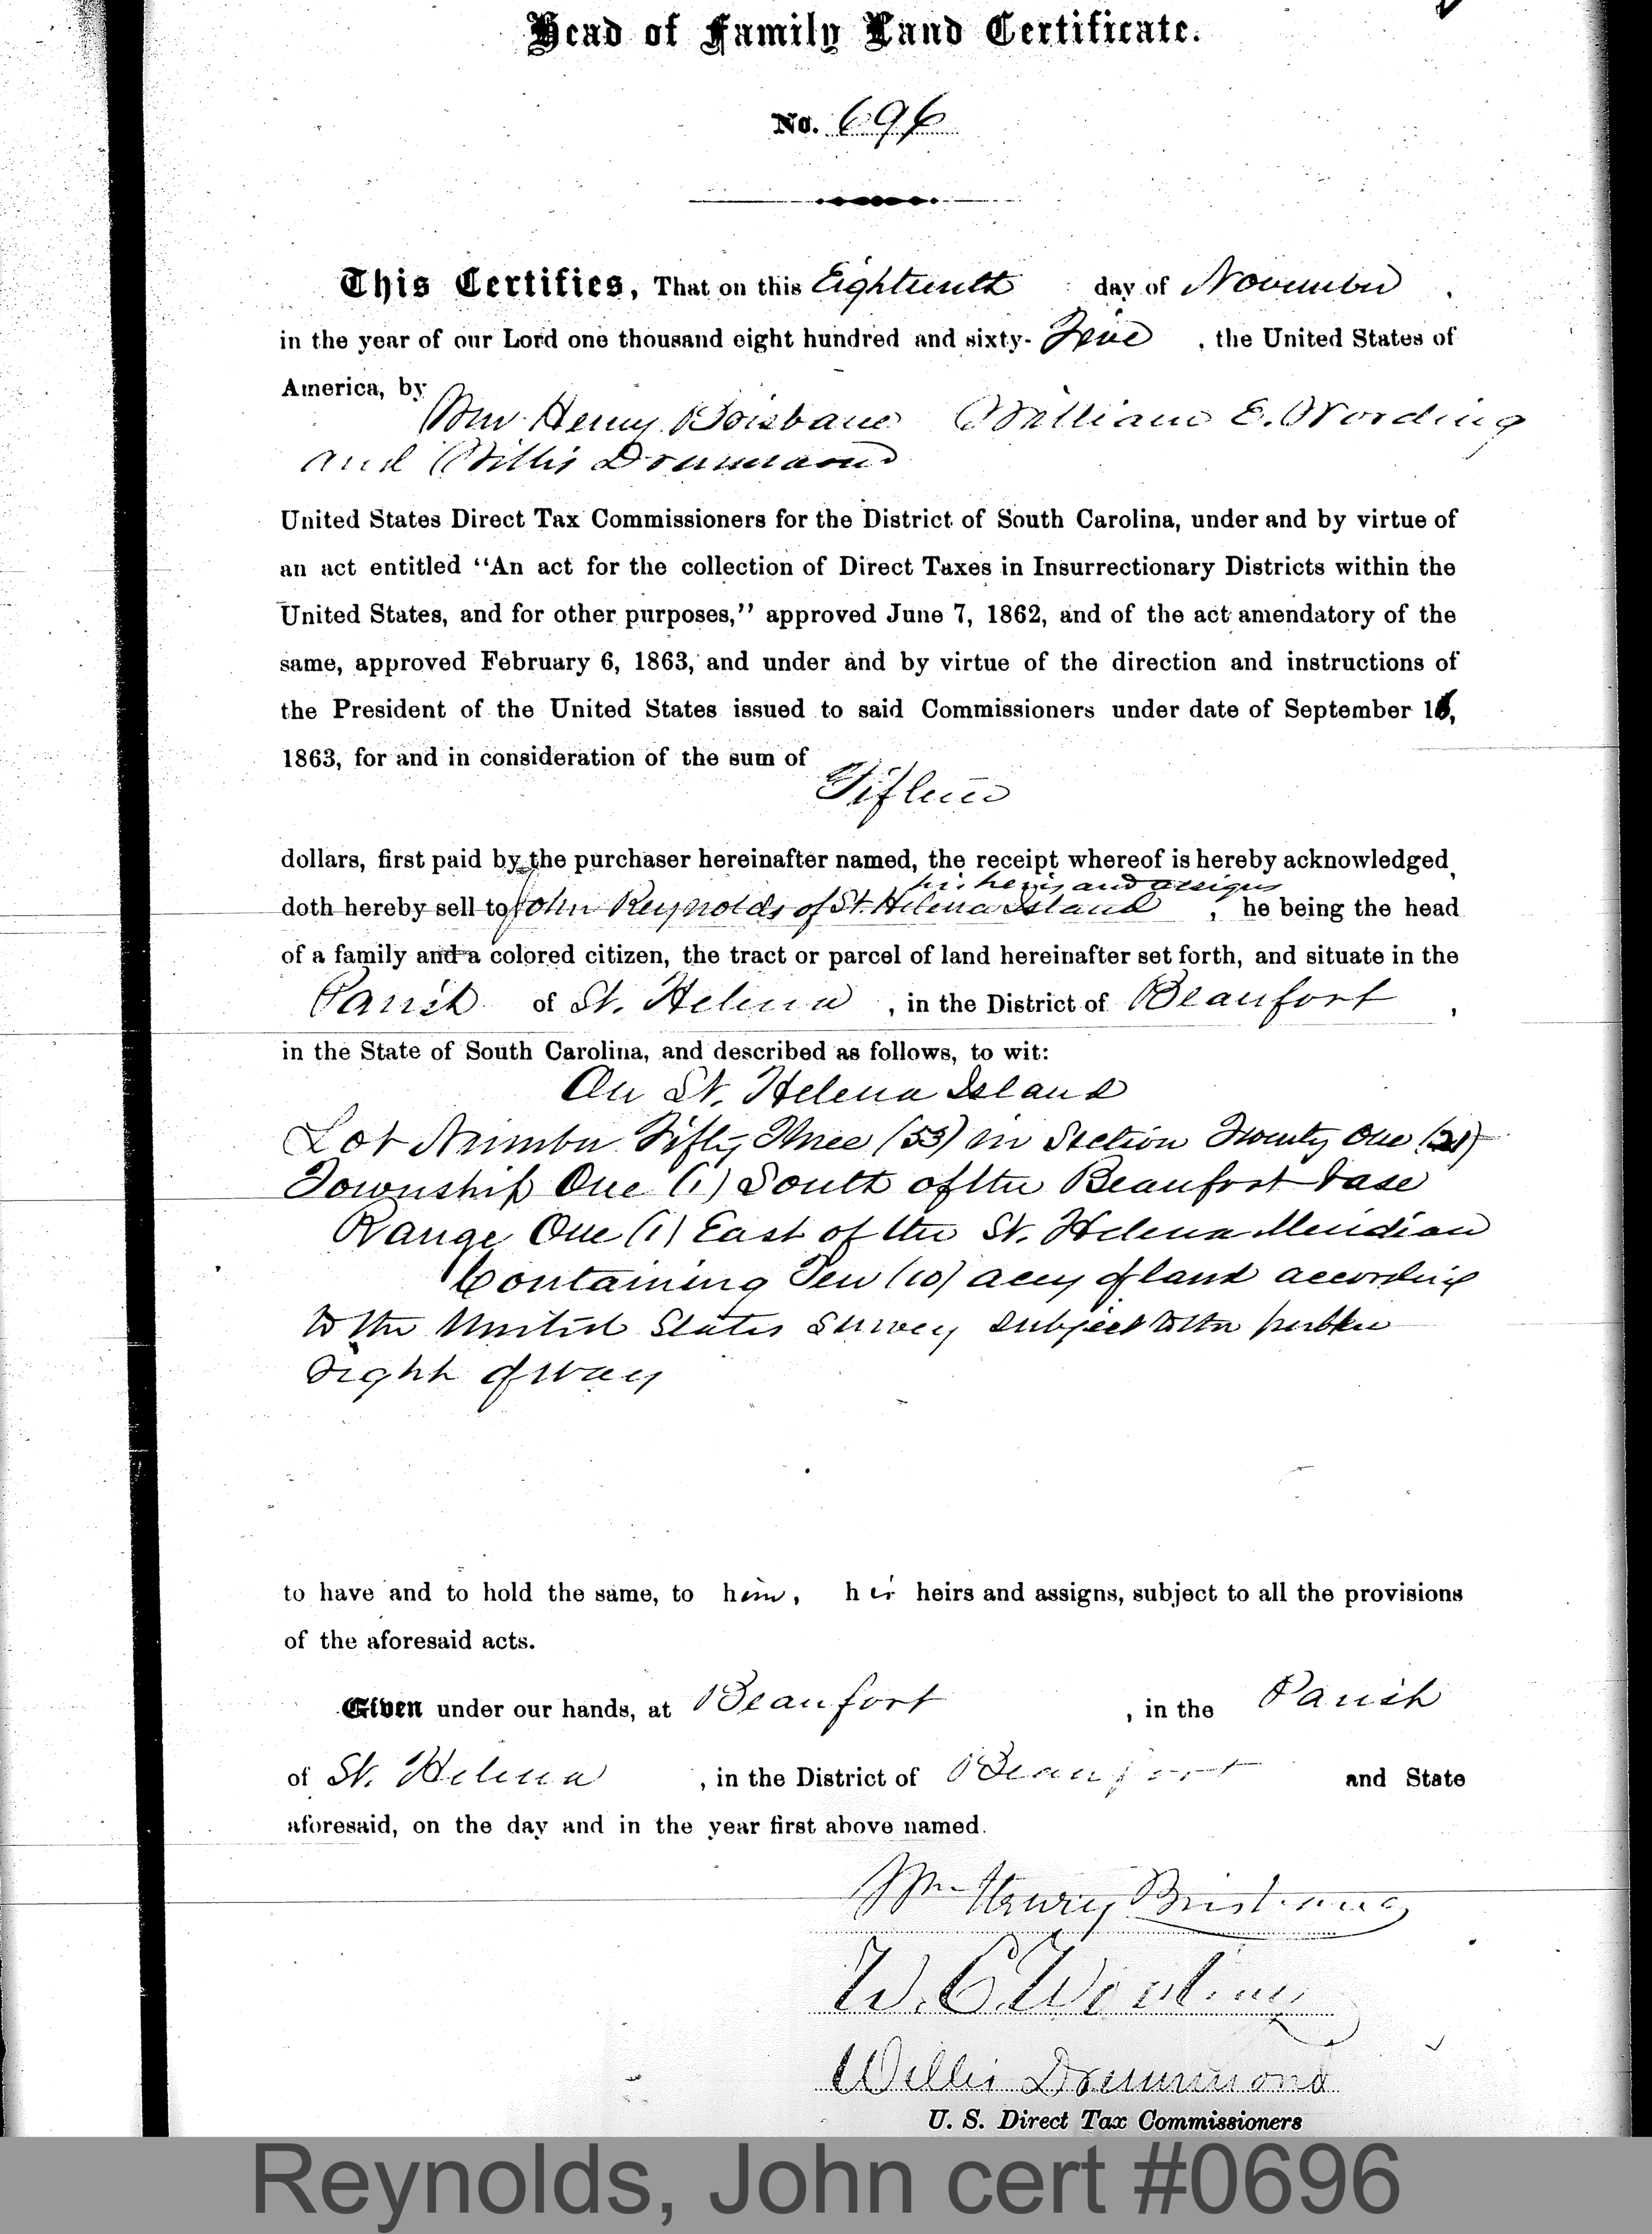 Head of Family Land Certificate.
No. 696
This Certifies, That on this Eighteenth day of November,
in the year of our Lord one thousand eight hundred and sixty-Five, the United States of
America, by
Wm Henry Brisbane William E. Wording
and Willis Drummond
United States Direct Tax Commissioners for the District of South Carolina, under and by virtue of
an act entitled "An act for the collection of Direct Taxes in Insurrectionary Districts within the
United States, and for other purposes," approved June 7, 1862, and of the act amendatory of the
same, approved February 6, 1863, and under and by virtue of the direction and instructions of
the President of the United States issued to said Commissioners under date of September 16,
1863, for and in consideration of the sum of
Fifteen
dollars, first paid by the purchaser hereinafter named, the receipt whereof is hereby acknowledged,
his heirs and assigns
doth hereby sell to John Reynolds of St. Helena Island, he being the head
of a family and a colored citizen, the tract or parcel of land hereinafter set forth, and situate in the
Parish of St. Helena, in the District of Beaufort,
in the State of South Carolina, and described as follows, to wit:
On St. Helena Island
Lot Number Fifty Three (53) in Section Twenty One (21)
Township One (1) South of the Beaufort base
Range One (1) East of the St. Helena Meridian
Containing Ten (10) acres of land according
to the United States Survey subject to the public
right of way
to have and to hold the same, to him, his heirs and assigns, subject to all the provisions
of the aforesaid acts.
Given under our hands, at Beaufort, in the Parish
of St. Helena, in the District of Beaufort and State
aforesaid, on the day and in the year first above named.
Wm Henry Brisbane
W. E. Wording
Willis Drummond
U. S. Direct Tax Commissioners
Reynolds, John cert #0696